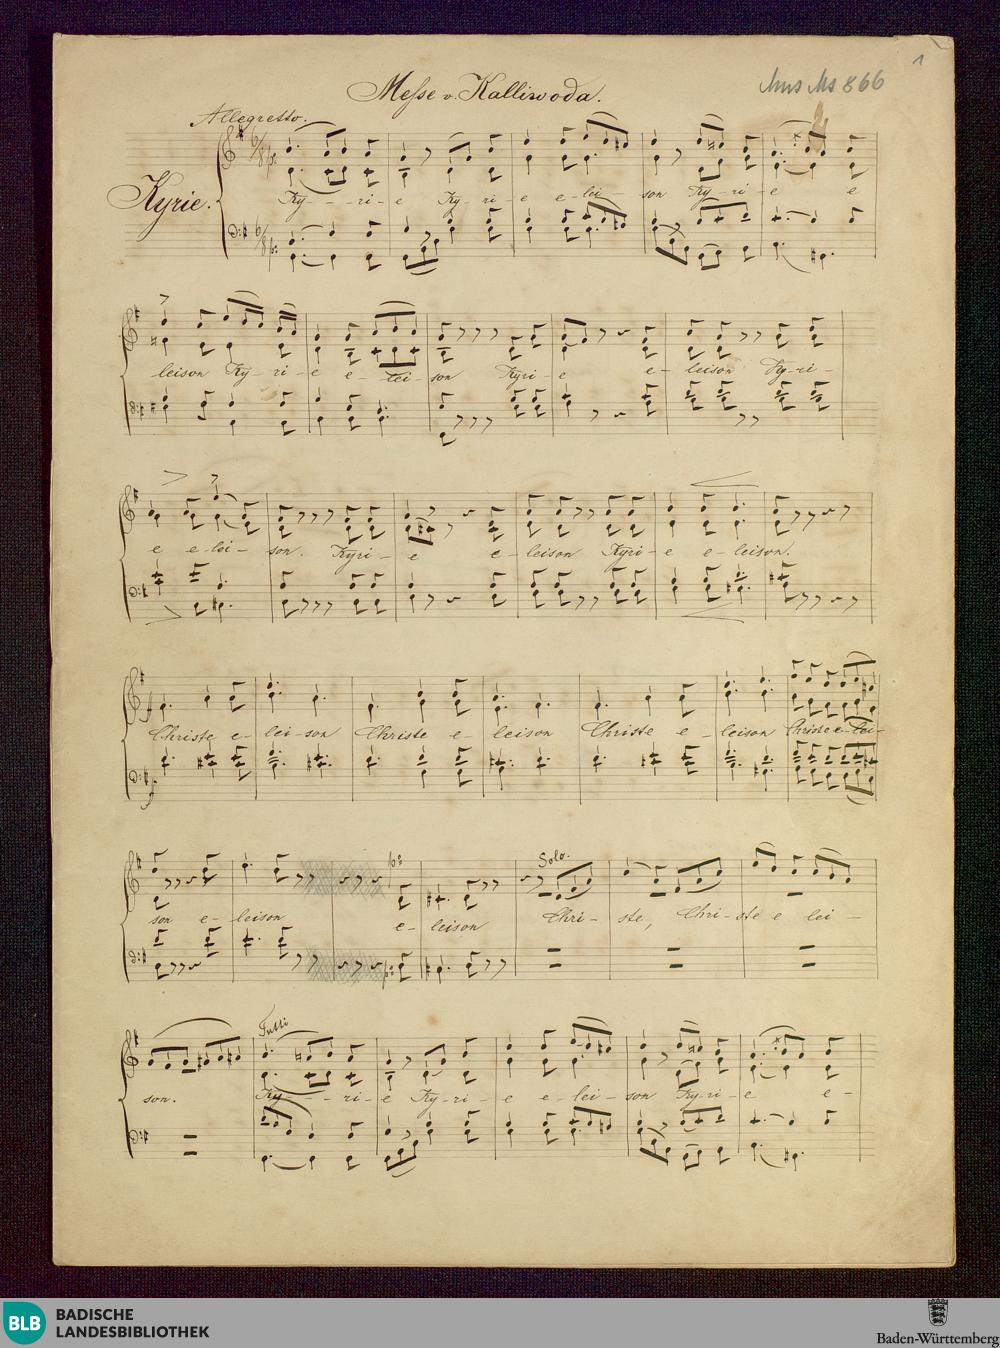 1
Mus Ms 866
Messe v. Kalliwoda.
Allegretto.
Kyrie.
Ky - - ri - e Ky - ri - e e - lei - son Ky - ri - e e
leison Ky - ri - e e - lei - son Kyri - e e - leison Ky - ri -
e e - lei - son. Kyri - e e - leison Kyri - e e - leison.
Christe e - lei - son Christe e - leison Christe e - leison Christe e - lei -
Solo.
son e - leison e - leison Chri - ste, Chri - ste e lei -
Tutti
son. Ky - - - ri - e Ky - ri - e e - lei - son Ky - ri - e e -
BLB BADISCHE
LANDESBIBLIOTHEK
Baden-Württemberg